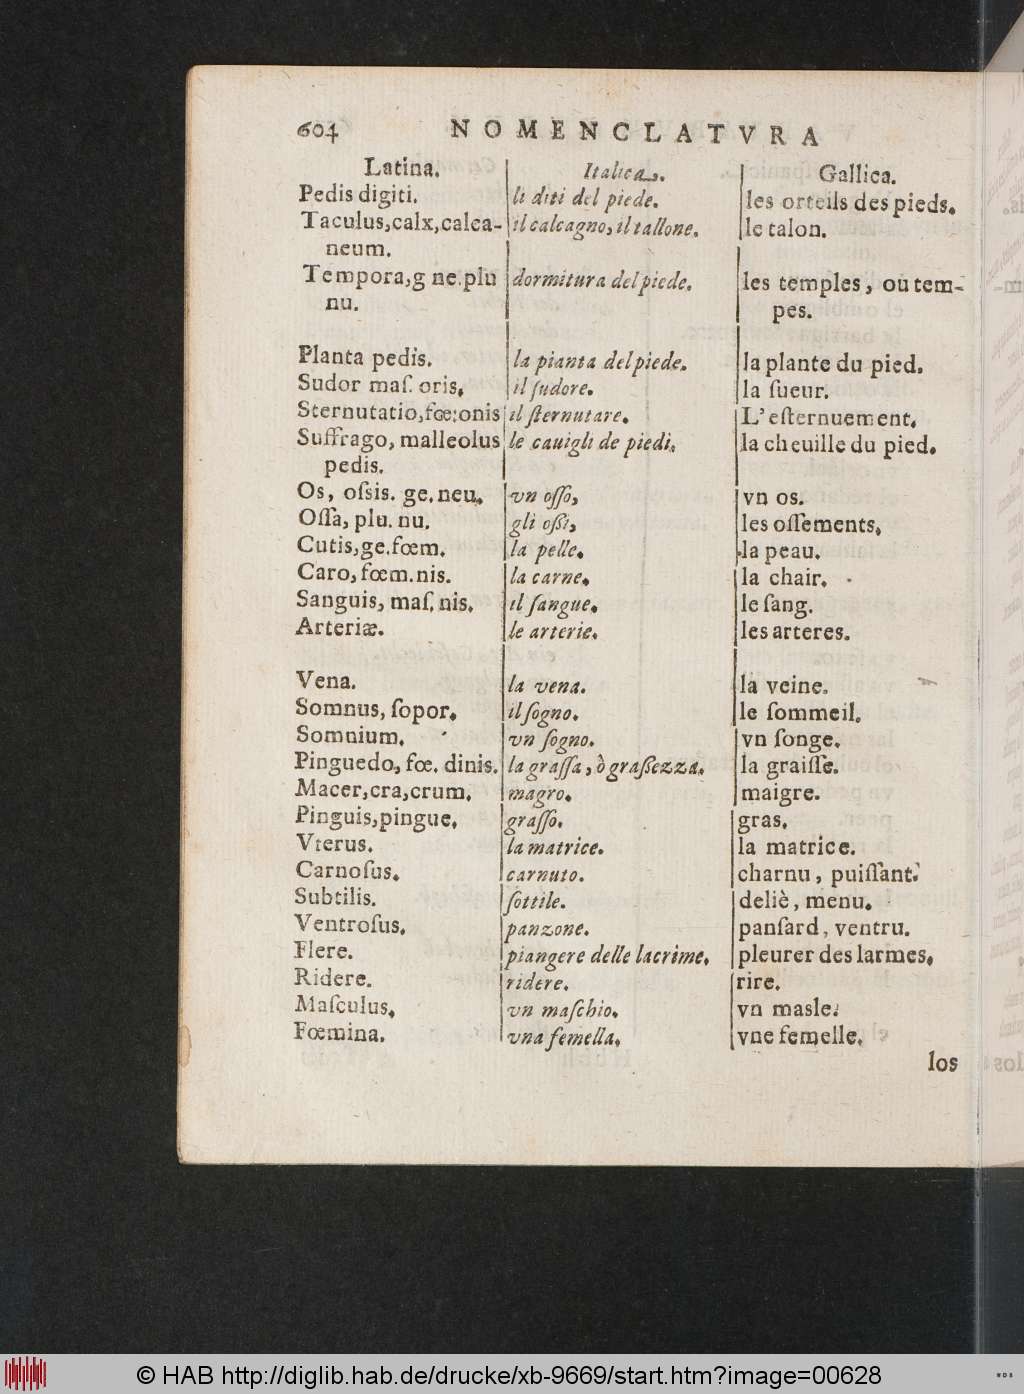 604 NOMENCLATVRA
Latina. Italica. Gallica.
Pedis digiti. li diti del piede. les orteils des pieds.
Taculus,calx,calca- il calcagno, il tallone. le talon.
neum.
Tempora,g ne.plu dormitura del piede. les temples, ou tem-
nu. pes.
Planta pedis. la pianta del piede. la plante du pied.
Sudor maſ. oris. il ſudore. la ſueur.
Sternutatio,fœ:onis il ſternutare. L'eſternuement.
Suffrago, malleolus le cauigli de piedi. la cheuille du pied.
pedis.
Os, oſsis. ge. neu. vn oſſo, vn os.
Oſſa, plu. nu. gli oßi, les oſſements,
Cutis,ge.fœm. la pelle. la peau.
Caro, fœm.nis. la carne. la chair.
Sanguis, maſ. nis. il ſangue. le ſang.
Arteriæ. le arterie. les arteres.
Vena. la vena. la veine.
Somnus, ſopor. il ſogno. le ſommeil.
Somnium. vn ſogno. vn ſonge.
Pinguedo, fœ. dinis. la graſſa, ò graßezza. la graiſſe.
Macer,cra,crum. magro. maigre.
Pinguis,pingue. graſſo. gras.
Vterus. la matrice. la matrice.
Carnoſus. carnuto. charnu, puiſſant.
Subtilis. ſottile. deliè, menu.
Ventroſus. panzone. panſard, ventru.
Flere. piangere delle lacrime. pleurer des larmes.
Ridere. ridere. rire.
Maſculus. vn maſchio. vn masle.
Fœmina. vna femella. vne femelle.
los
© HAB http://diglib.hab.de/drucke/xb-9669/start.htm?image=00628